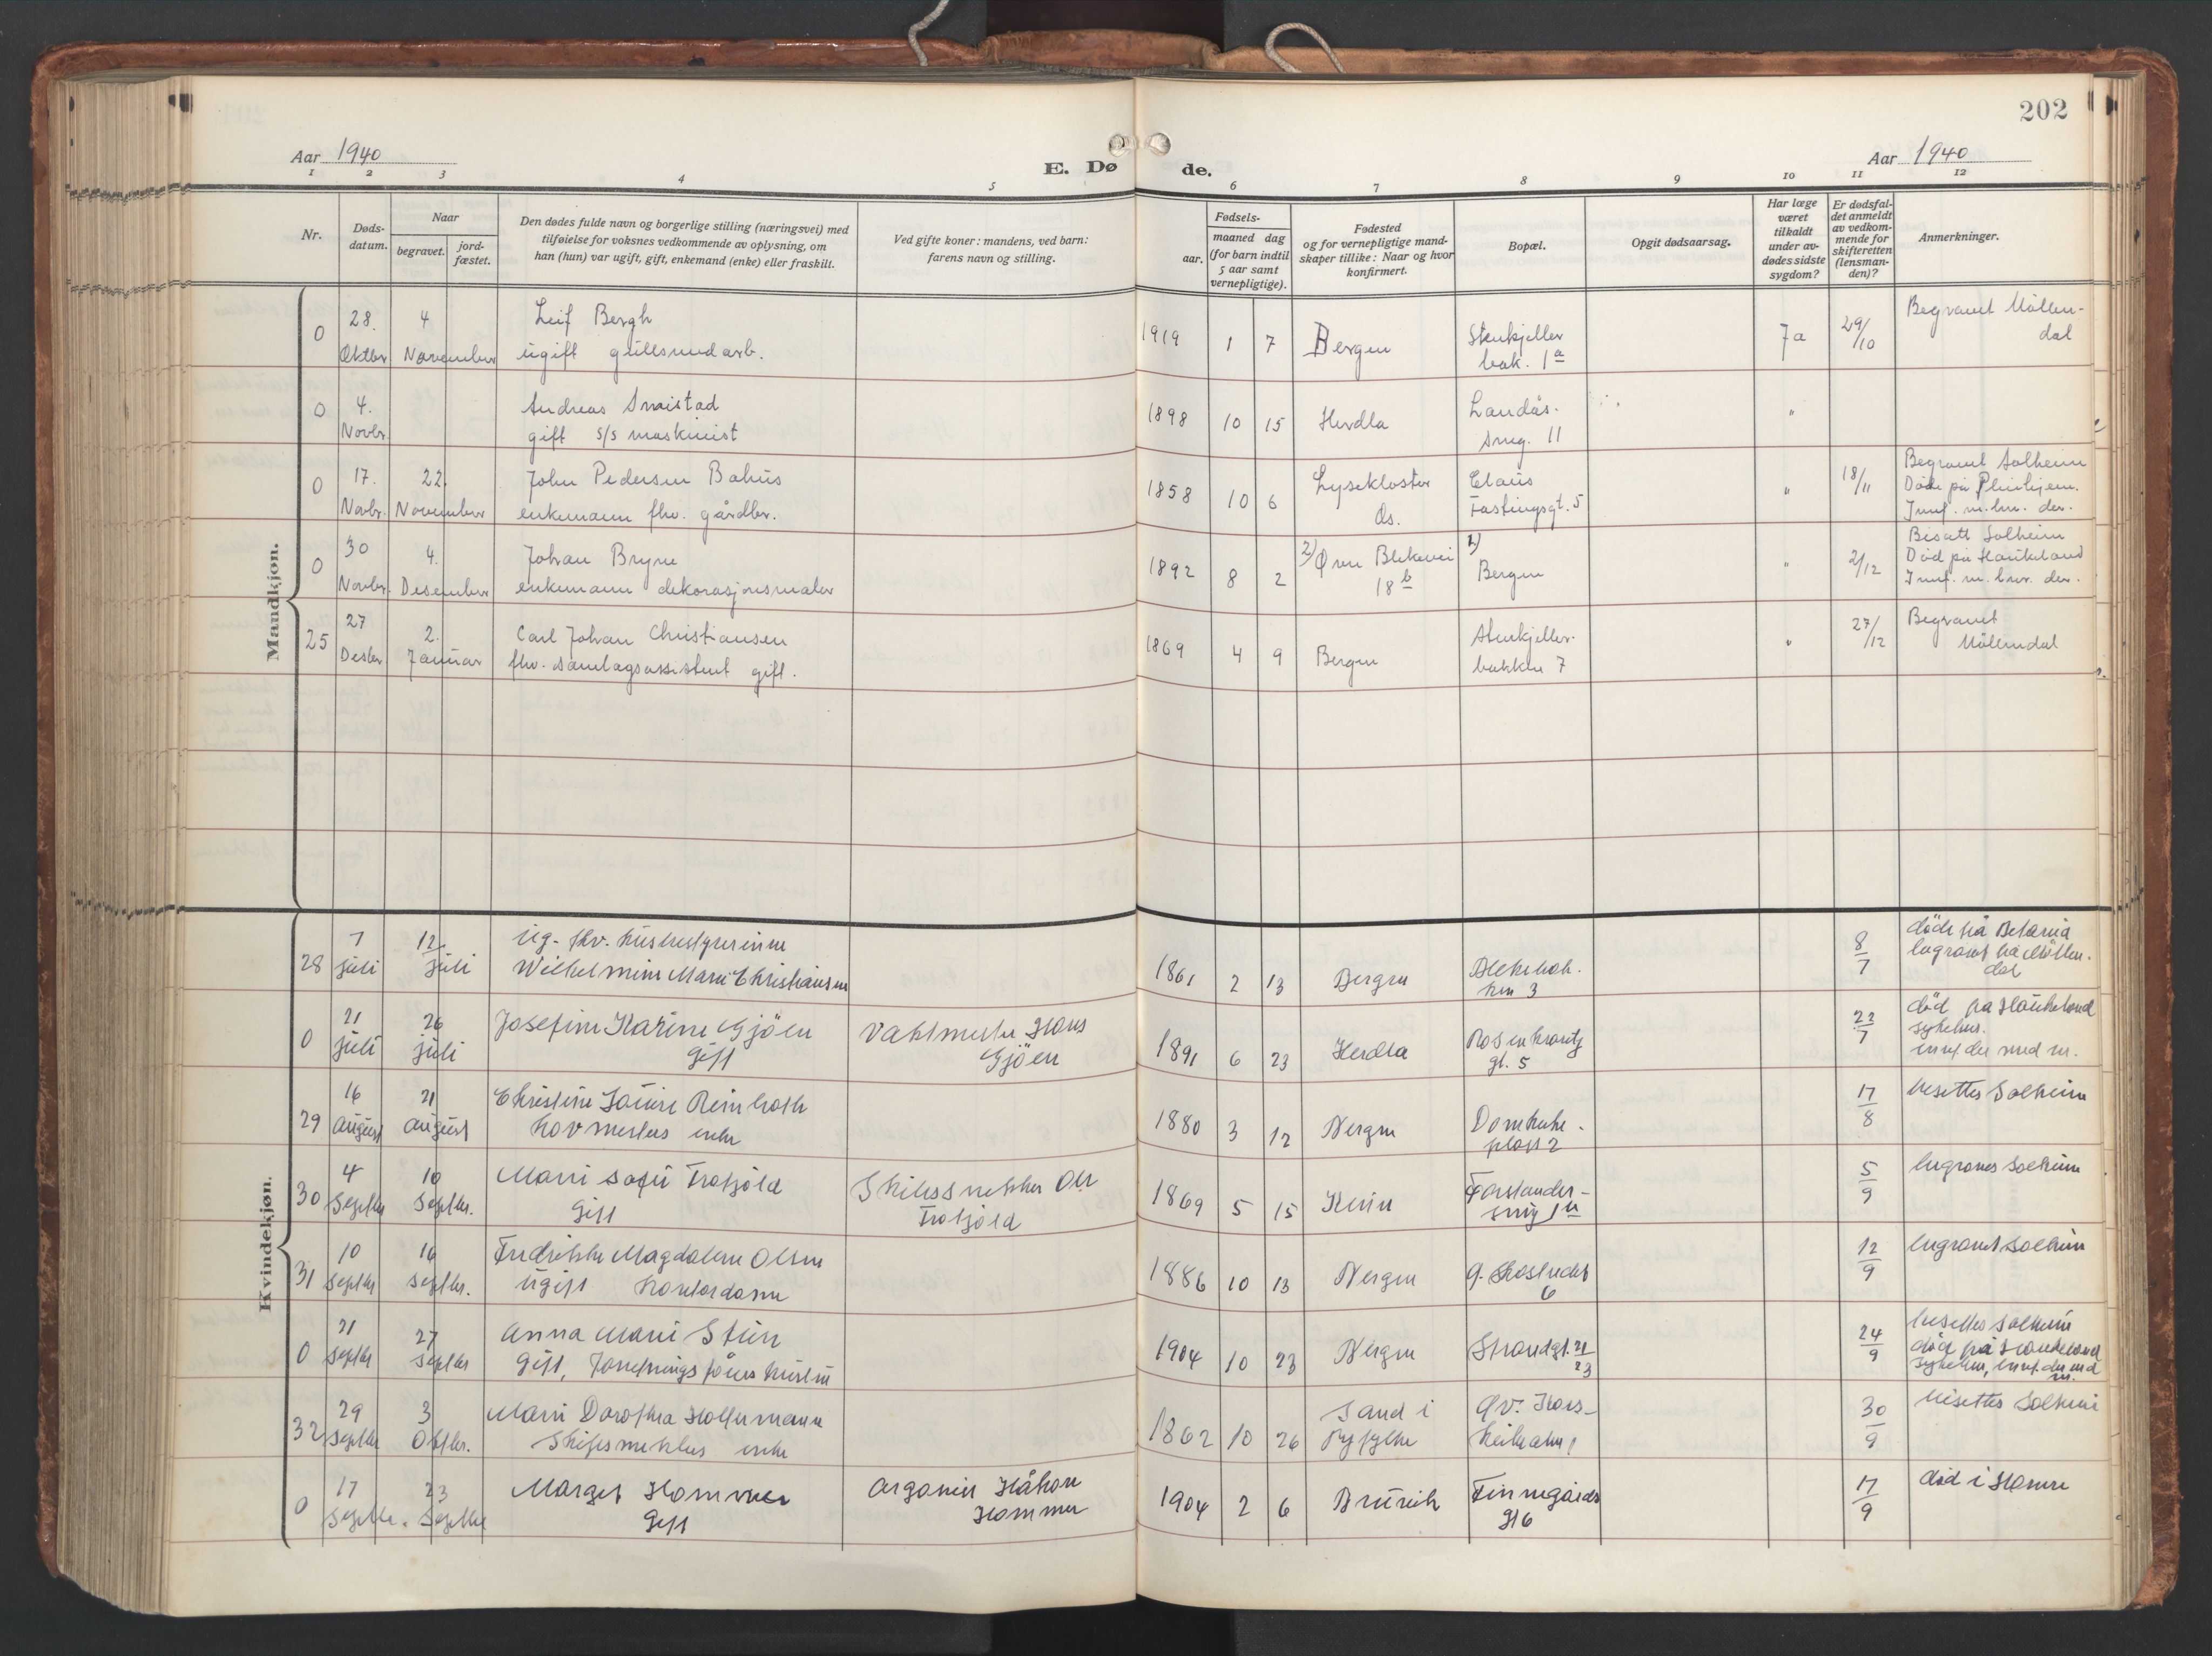 202
Aar 1940
E. Dø
de.
Aar 1940
1 2 3 4 5 6 7 8 9 10 11 12
Nr.
Døds-
datum.
Naar
begravet.
jord-
fæstet.
Den dødes fulde navn og borgerlige stilling (næringsvei) med
tilføielse for voksnes vedkommende av oplysning, om
han (hun) var ugift, gift, enkemand (enke) eller fraskilt.
Ved gifte koner: mandens, ved barn:
farens navn og stilling.
Fødsels-
aar.
maaned dag
(for barn indtil
5 aar samt
vernepligtige).
Fødested
og for vernepligtige mand-
skaper tillike: Naar og hvor
konfirmert.
Bopæl.
Opgit dødsaarsag.
Har læge
været
tilkaldt
under av-
dødes sidste
sygdom?
Er dødsfal-
det anmeldt
av vedkom-
mende for
skifteretten
(lensman-
den)?
Anmerkninger.
Mandkjøn.
0 28. Oktbr. 4 November
Leif Bergh
ugift gullsmedarb.
1919 1 7 Bergen
Stenkjeller
bak. 1a
Ja 29/10
Begravet Möllen-
dal
0 4. Novbr.
Andreas
gift s/s maskinist
1898 10 15 Herdla
Landås.
smg. 11
"
0 17. Novbr. 22. November
John Pedersen Bahus
enkemann fhv. gårdbr.
1858 10 6
Lysekloster
Os.
Claus
Fastingsgt. 5
" 18/11
Begravet Solheim
Döde på Pleiehjem.
0 30 Novbr. 4. Desember
Johan Bryne
enkemann dekorasjonsmaler
1892 8 2
2) Øvre Blekevei
18b
1)
Bergen
" 2/12
Bisatt Solheim
Död på Haukeland
25 27 Desbr 2. Januar
Carl Johan Christiansen
fhv. samlagsassistent gift.
1869 4 9 Bergen
Stenkjeller-
bakken 7
" 27/12
Begravet
Möllendal
Kvindekjøn.
28 7 juli 12. juli
Ug. fhv. husbestyrerinne
Wilhelmine Marie Christiansen
1861 2 13 Bergen
Blekebak-
ken 3
8/7
döde på Betania
begravet på Möllen-
dal
0 21 juli 26 juli
Josefine Karine Gjöen
Gift
Vaktmester Hans
Gjöen
1891 6 23 Herdla
Rosenkrantz
gt. 5
22/7
död på Haukeland
sykehus.
29 16 august 21 august
Christine Louise Reinboth
Hovmesters enke
1880 3 12 Bergen
Domkirke-
plass 2
17/8
bisettes Solheim
30 4 Septbr 10 Septbr.
Marie Sofie
Gift
Skibssnekker Ole
1869 5 15
Forstander-
smug 1a
5/9
begraves Solheim
31 10 Septbr 16 Septbr.
Fredrikke Magdalene Olsen
ugift Kontordame
1886 10 13 Bergen
6
12/9
begravet Solheim
0 21 Septbr 27 Septbr
Anna Marie
Gift,
1904 10 23 Bergen
Strandgt. 21
23
24/9
bisettes Solheim
död på Haukeland
32 29 Septbr 3 Oktbr.
Marie Dorothea Hollermann
enke
1862 10 26
Sand i
Ryfylke
30/9
bisettes Solheim
0 17 Septbr. 23 Septbr
Marget Hammer
Gift
Organist Håkon
Hammer
1904 2 6
Finnegårds
gt 6
17/9
død i Hamre